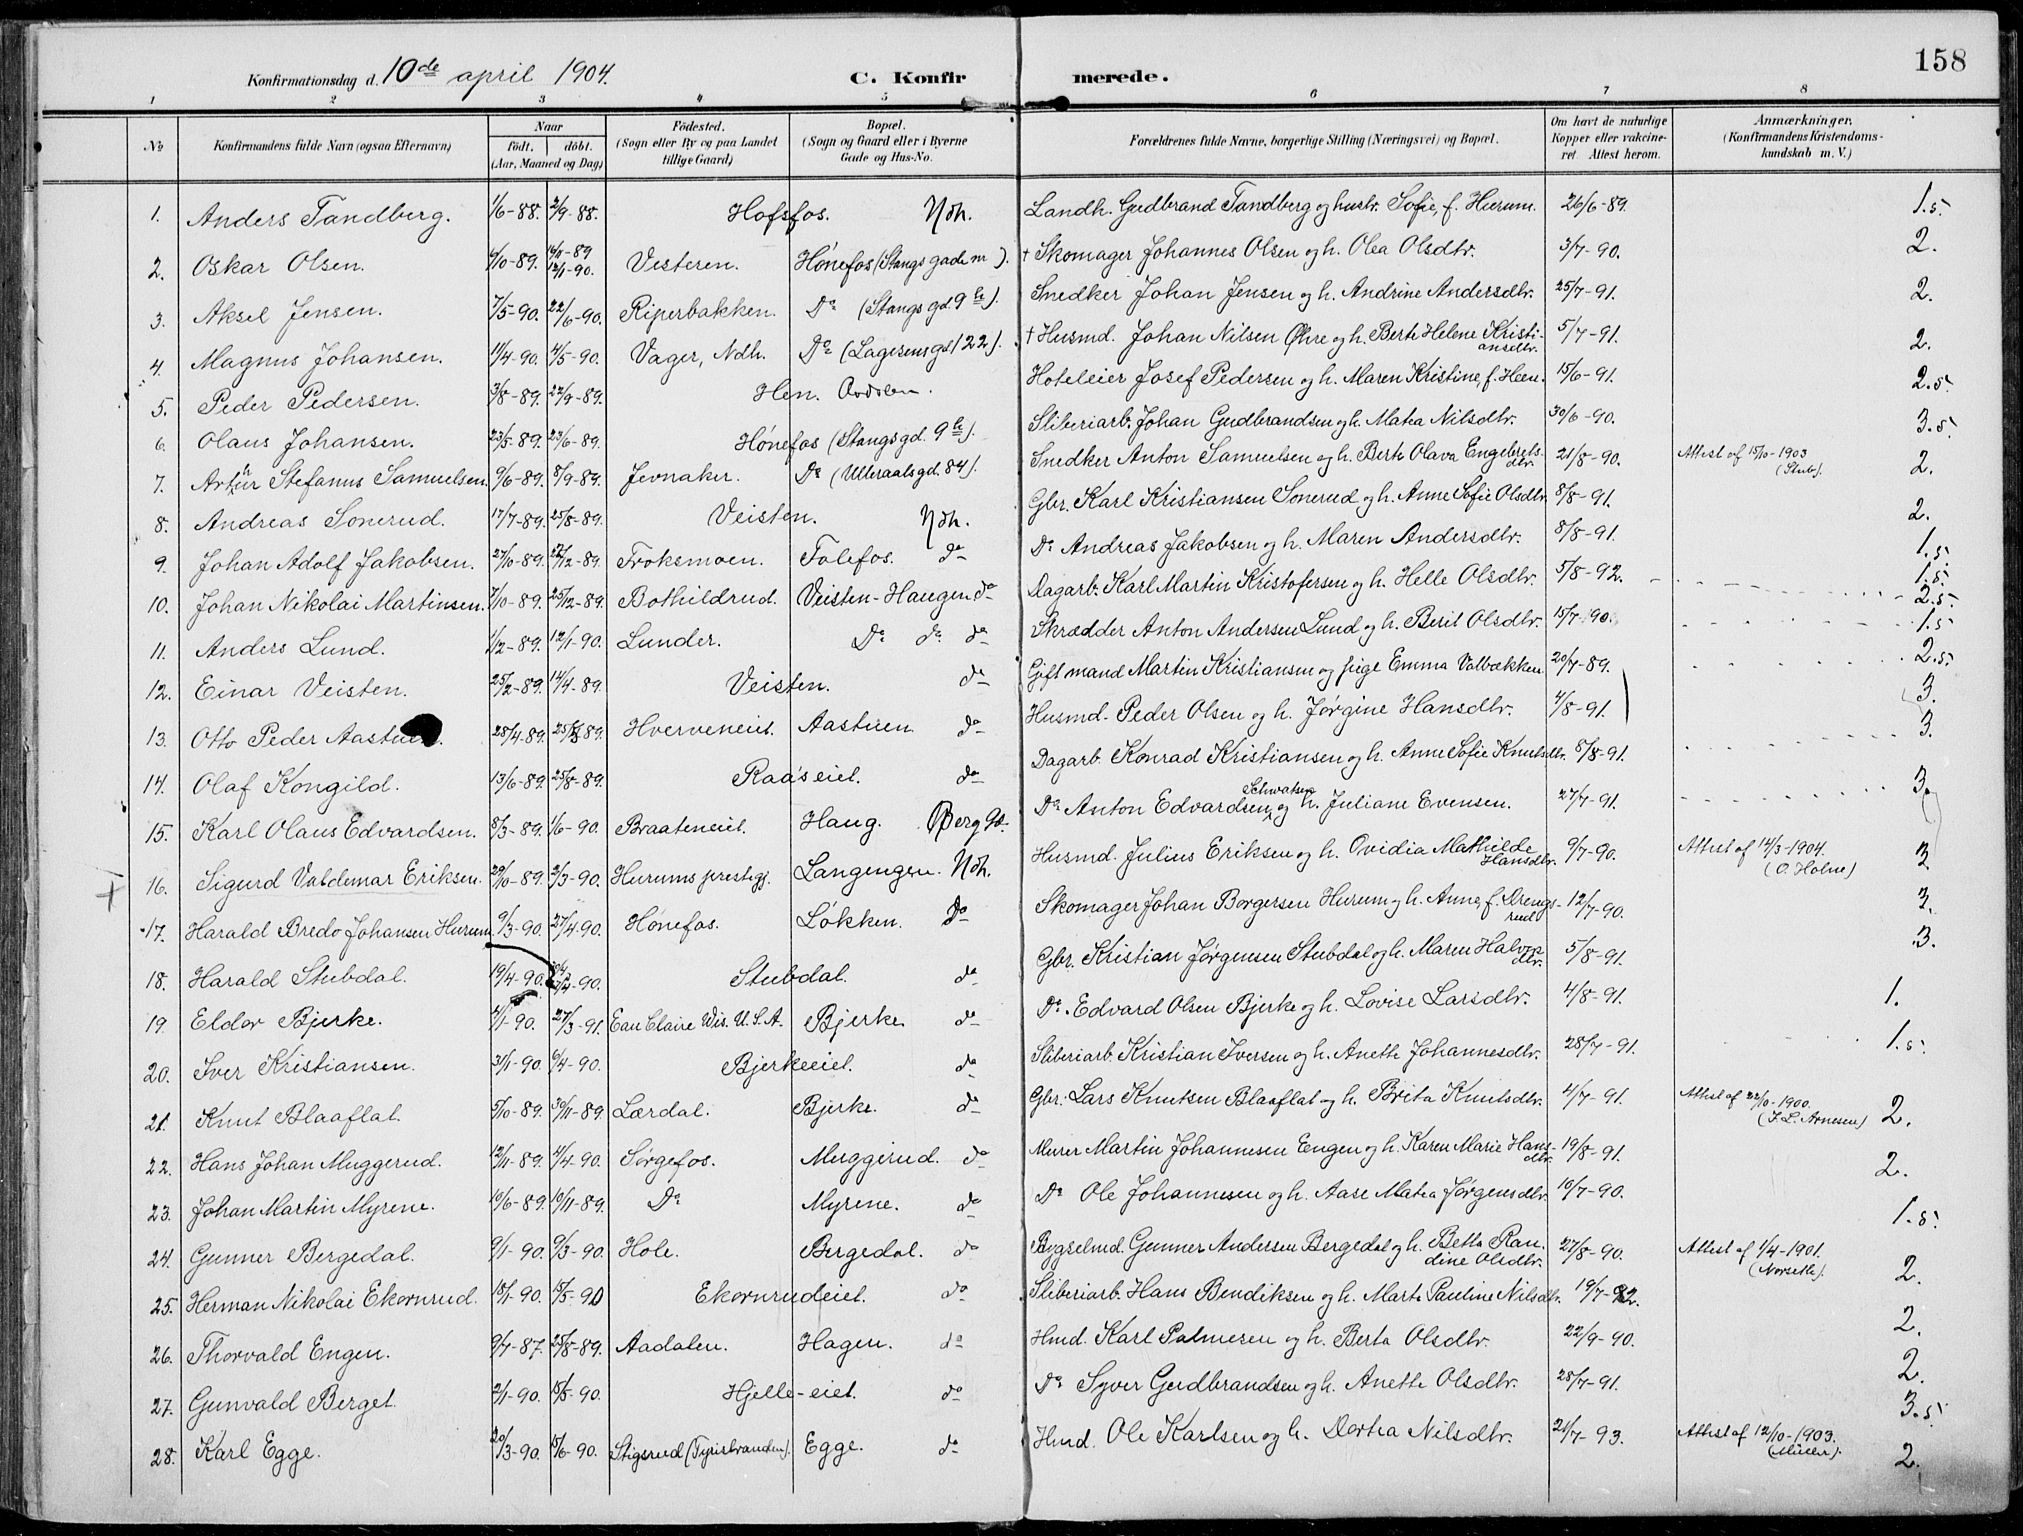 158
Konfirmationsdag d. 10de april 1904. C. Konfirmerede.
1 2 3 4 5 6 7 8
No Konfirmandens fulde Navn (ogsaa Efternavn) Naar født. døbt. (Aar, Maaned og Dag) Fødested. (Sogn eller By og paa Landet tillige Gaard) Bopæl. (Sogn og Gaard eller i Byerne Gade og Hus-No. Forældrenes fulde Navne, borgerlige Stilling (Næringsvei) og Bopæl. Om havt de naturlige Kopper eller vakcineret. Attest herom. Anmærkninger. (Konfirmandens Kristendomskundskab m. V.)
1. Anders Tandberg. 1/6-88. 2/9-88. Hofsfos. Ndh. Landh. Gudbrand Tandberg og hustr. Sofie, f. Hurum. 26/6-89. 1.5.
2. Oskar Olsen. 4/10-89. 16/11-89 12/1-90. Vesteren. Hønefos (Stangs gade nr ). † Skomager Johannes Olsen og h. Olea Olsdtr. 3/7-90. 2.
3. Aksel Jensen. 7/5-90. 22/6-90. Riperbakken. Do (Stangs gd. 9 b). Snedker Johan Jensen og h. Andrine Andersdtr. 25/7-91. 2.
4. Magnus Johansen. 11/4-90. 4/5-90. Vager, Ndh. Do (Lagesens gd 122). † Husmd. Johan Nilsen Øhre og h. Berte Helene Kristiansdtr. 5/7-91. 2.
5. Peder Pedersen. 3/8-89. 22/9-89. Hen. Aadalen. Hoteleier Josef Pedersen og h. Maren Kristine, f. Heen. 15/6-91. 2.5.
6. Olaus Johansen. 23/5-89. 23/6-89. Hønefos (Stangs gd. 9 b). Sliberiarb. Johan Gudbrandsen og h. Matea Nilsdtr. 30/6-90. 3.5.
7. Arthur Stefanus Samuelsen. 9/6-89. 8/9-89. Jevnaker. Do (Ulleraals gd. 84). Snedker Anton Samuelsen og h. Berte Olava Engebretsdtr. 21/8-90. Attest af 15/10-1903 (Stub). 2.
8. Andreas Sonerud. 17/7-89. 25/8-89. Veisten. Ndh. Gbr. Karl Kristiansen Sonerud og h. Anne Sofie Olsdtr. 8/8-91. 2.
9. Johan Adolf Jakobsen. 27/10-89. 22/12-89. Troksmoen. Follefos. do Do Andreas Jakobsen og h. Maren Andersdtr. 8/8-91. 1.5.
10. Johan Nikolai Martinsen. 7/10-89. 25/12-89. Bothildrud. Veisten-Haugen do Dagarb. Karl Martin Kristofersen og h. Helle Olsdtr. 5/8-92. 1.5. 2.5.
11. Anders Lund. 1/2-89. 12/1-90. Lunder. Do do do Skrædder Anton Andersen Lund og h. Berit Olsdtr. 15/7-90. 1.5
12. Einar Veisten. 25/2-89. 14/4-89. Veisten. do Gift mand Martin Kristiansen og pige Emma Valbækken 20/7-89. 2.5.
13. Otto Peder Aastuen. 28/4-89. 25/8 89. Hverveneiet. Aastuen do Husmd. Peder Olsen og h. Jørgine Hansdtr. 4/8-91. 3. 3.
14. Olaf Kongild. 13/6-89. 25/8-89. Raa's eiet. do Dagarb. Konrad Kristiansen og h. Anne Sofie Knutsdtr. 8/8-91.
15. Karl Olaus Edvardsen. 8/3-89. 1/6-90. Braateneiet. Haug. Øberg gd. Do Anton Edvardsen Schwatsen og h. Juliane Evensen. 27/7-91. 3.
16. Sigurd Valdemar Eriksen. 29/10-89. 2/3-90. Hurums prestegj. Langengen. Ndh. Husmd. Julius Eriksen og h. Ovidia Mathilde Hansdtr. 9/7-90. Attest af 14/3-1904. (O. Holme) 3
17. Harald Bredo Johansen Hurum 9/3-90. 27/4-90. Hønefos. Løkken. do Skomager Johan Borgersen Hurum og h. Anne, f. Drengsrud 12/7-90. 3.
18. Harald Stubdal. 19/4-90. -90. Stubdal. do Gbr. Kristian Jørgensen Stubdal og h. Maren Halvorsdtr. 5/8-91. 3.
19. Eldor Bjerke. 4/1-90. 27/3-91. Eau Claire Wis. U.S.A. Bjerke do Do. Edvard Olsen Bjerke og h. Lovise Larsdtr. 4/8-91. 1.
20. Iver Kristiansen. 31/1-90. 6/4-90. Bjerkeeiet. do Sliberiarb. Kristian Iversen og h. Anette Johannesdtr. 28/7-91. 1.5.
21. Knut Blaaflat. 5/10-89. 30/11-89 Lærdal. Bjerke. do Gbr. Lars Knutsen Blaaflat og h. Brita Knutsdtr. 4/7-91. Attest af 22/10-1900. (I. L. Arnesen) 2.
22. Hans Johan Muggerud. 12/11-89. 4/4-90. Sørgefos. Muggerud. do Murer Martin Johannesen Engen og h. Karen Marie Hansdtr. 19/8-91. 2.
23. Johan Martin Myrene. 10/6-89. 10/11-89. Do Myrene. do Do Ole Johannesen og h. Aase Matea Jørgensdtr. 10/7-90. 1.5.
24. Gunner Bergedal. 9/1-90. 9/3-90. Hole. Bergedal. do Bygselmd. Gunner Andersen Bergedal og h. Betta Randine Olsdtr. 27/8-90. Attest af 1/4-1901. (Norseth). 2.
25. Herman Nikolai Ekornrud. 18/1-90. 15/5-90 Ekornrudeiet. do Sliberiarb. Hans Bendiksen og h. Marte Pauline Nilsdtr. 19/7-92. 2.
26. Thorvald Engen. 9/7-87. 25/8-89. Aadalen. Hagen. do Hmd. Karl Palmesen og h. Berta Olsdtr. 22/9-90. 2.
27. Gunvald Berget. 2/1-90. 15/5-90. Hjelle-eiet. do Do Syver Gudbrandsen og h. Anette Olsdtr. 28/7-91. 3.5.
28. Karl Egge. 20/3-90. 15/6-90. Stigsrud (Tyristranden). Egge. do Hmd. Ole Karlsen og h. Dortea Nilsdtr. 21/7-93. Attest af 12/10-1903. (Müller). 2.